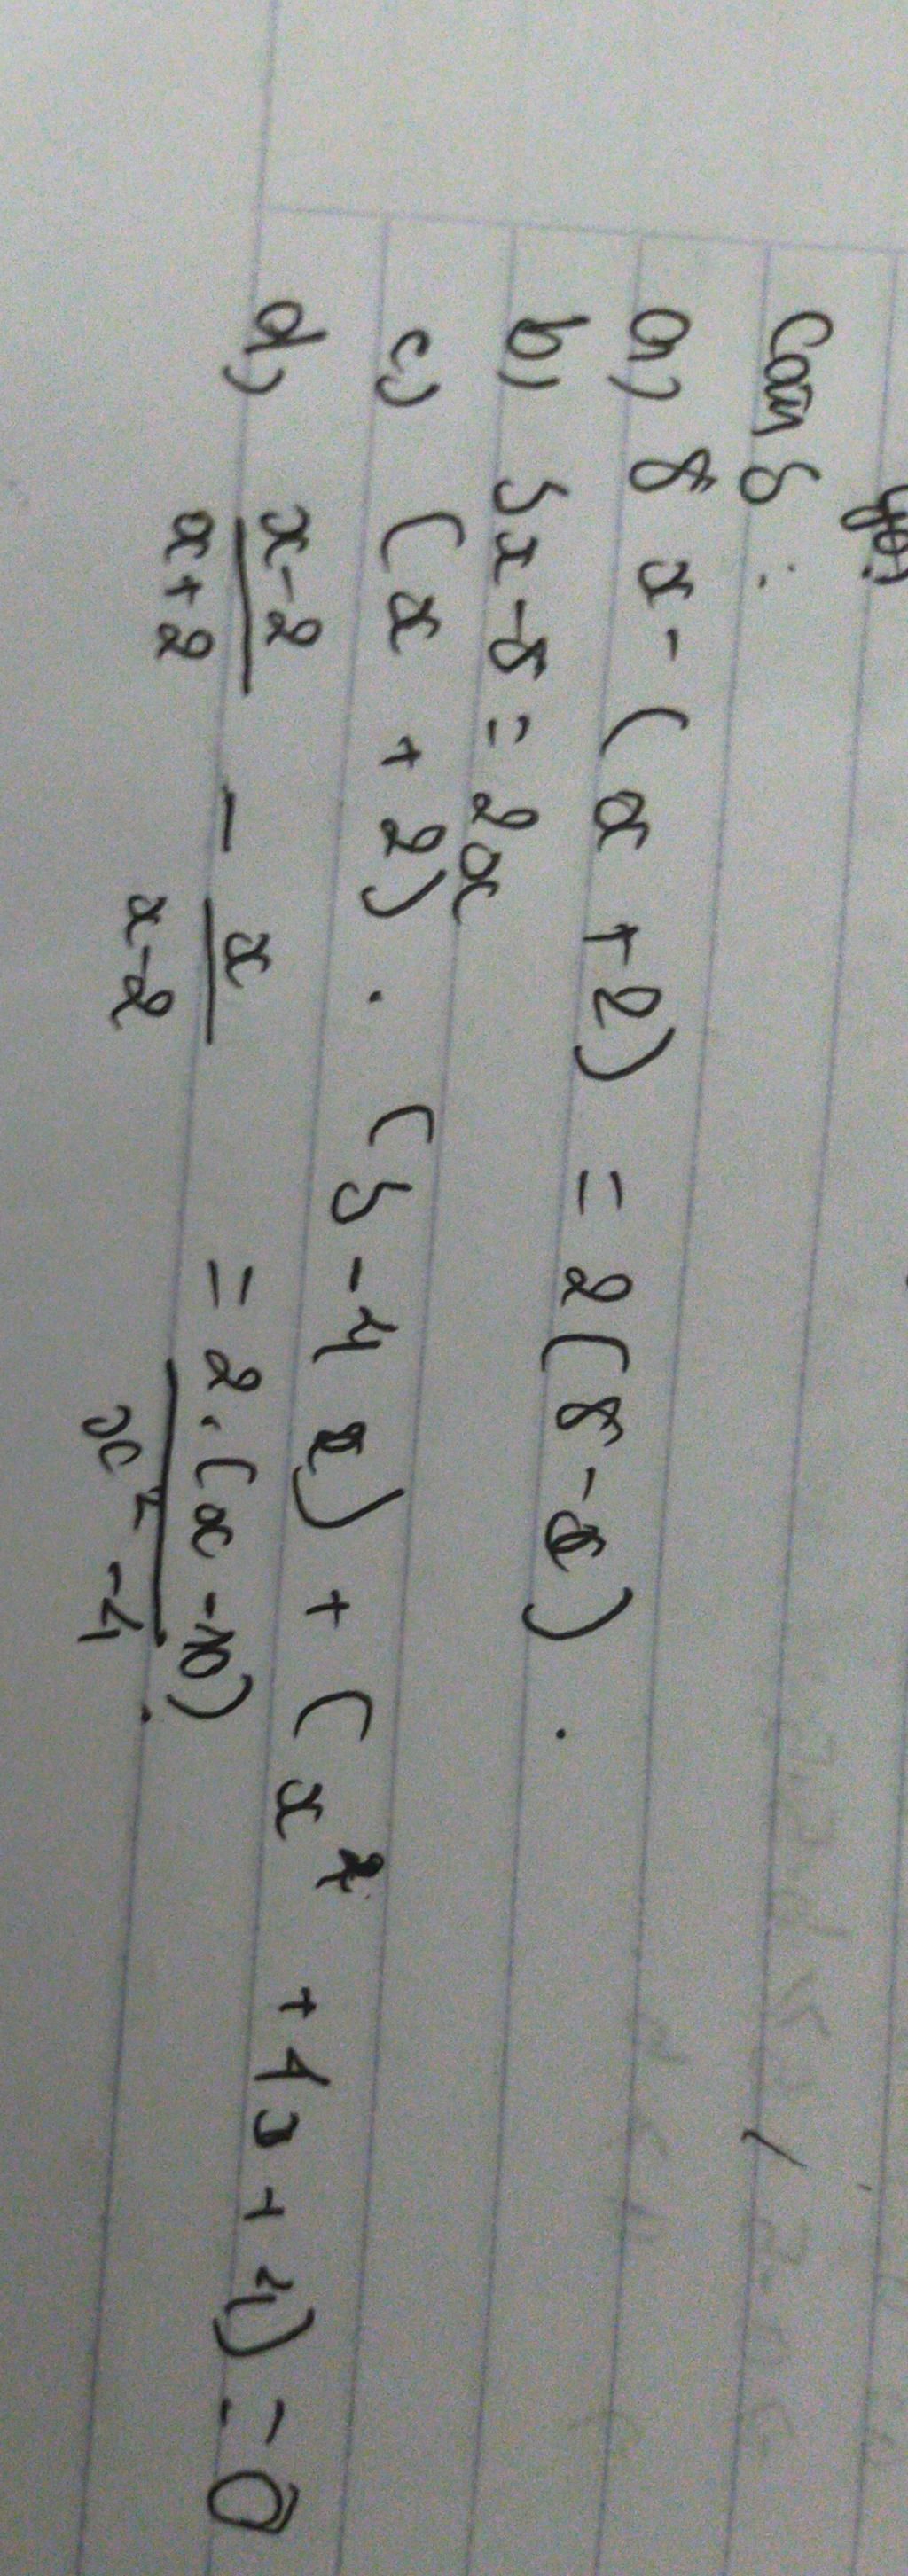 Can 8 :
a) 8 x - ( x + 2) = 2 ( 8 - x ) .
b) 5x - 8 = 2x
c) ( x + 2) . ( 5 - 4 x ) + ( x² + 4x + 4) = 0
d) \frac{x-2}{x+2} - \frac{x}{x-2} = \frac{2.(x-10)}{x² - 4} .